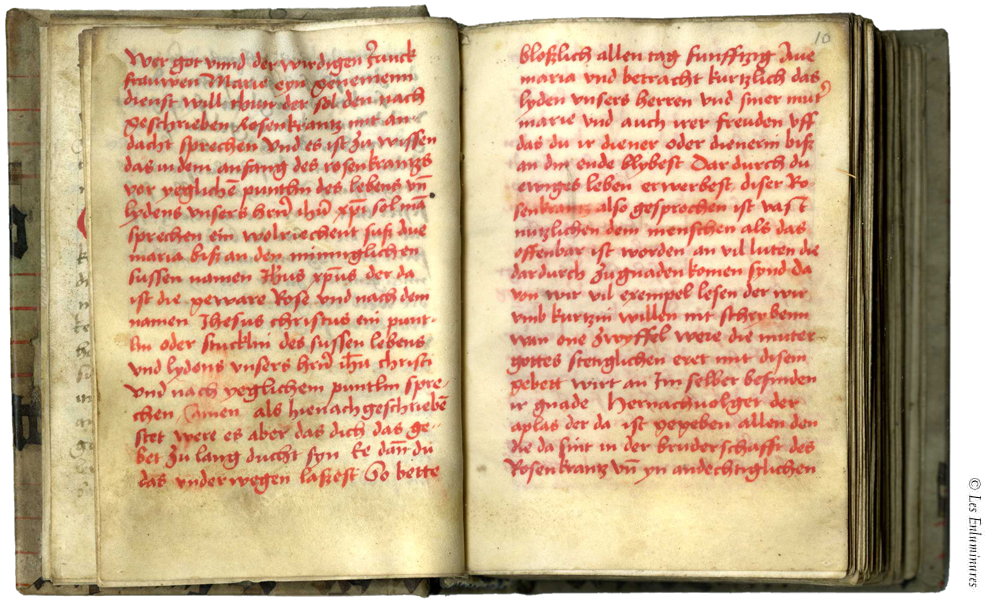 Wer got vnnd der wirdigen Junck
frauwen Marie eyn genemenn
dienst will thun der sol den nach
geschrieben Rosenkrantz mit an
dacht sprechen Vnd es ist zu wissen
das in dem anfang des rosenkrantzs
vor yeglichē puntlin des lebens vn̄
lydens vnsers hrn̄ ihū xp̄i sol mā
sprechen ein wolriechent suß aue
maria biß an den mininglichen
sussen namen Jhūs xp̄us der da
ist die geware Rose vnd nach dem
namen Jhesus christus ein punt-
lin oder stucklini des sussen lebens
vnd lydens vnsers hrn̄ ihū christi
vnd nach yeglichem puntlin spre-
chen Amen als hienach geschriebē
stet were es aber das dich das ge-
bet zu lang ducht syn te dan̄ du
das vnderwegen lassest So bette
10
bloßlich allen tag funfftzig Aue
maria vnd betracht kurtzlich das
lyden vnsers herren vnd siner mut'
marie vnd auch irer freuden vff
das du ir diener oder dienerin biß
an din ende blybest Dar durch du
ewiges leben erwerbest diser Ro
senkrantz also gesprochen ist vast
nutzlichen dem menschen als das
offenbar ist worden an vil luten die
dardurch zu gnaden komen synd da
von wir vil exempel lesen der wir
vmb kurtzin willen nit schrybenn
wan one zwyffel were die muter
gottes stenglichen eret mit disem
gebett wirt an Im selber befinden
ir gnade Hernach volget der
aplas der da ist gegeben allen den
die da sint in der bruderschafft des
Rosenkrantz vn̄ yn andechtiglichen
© Les Enluminures